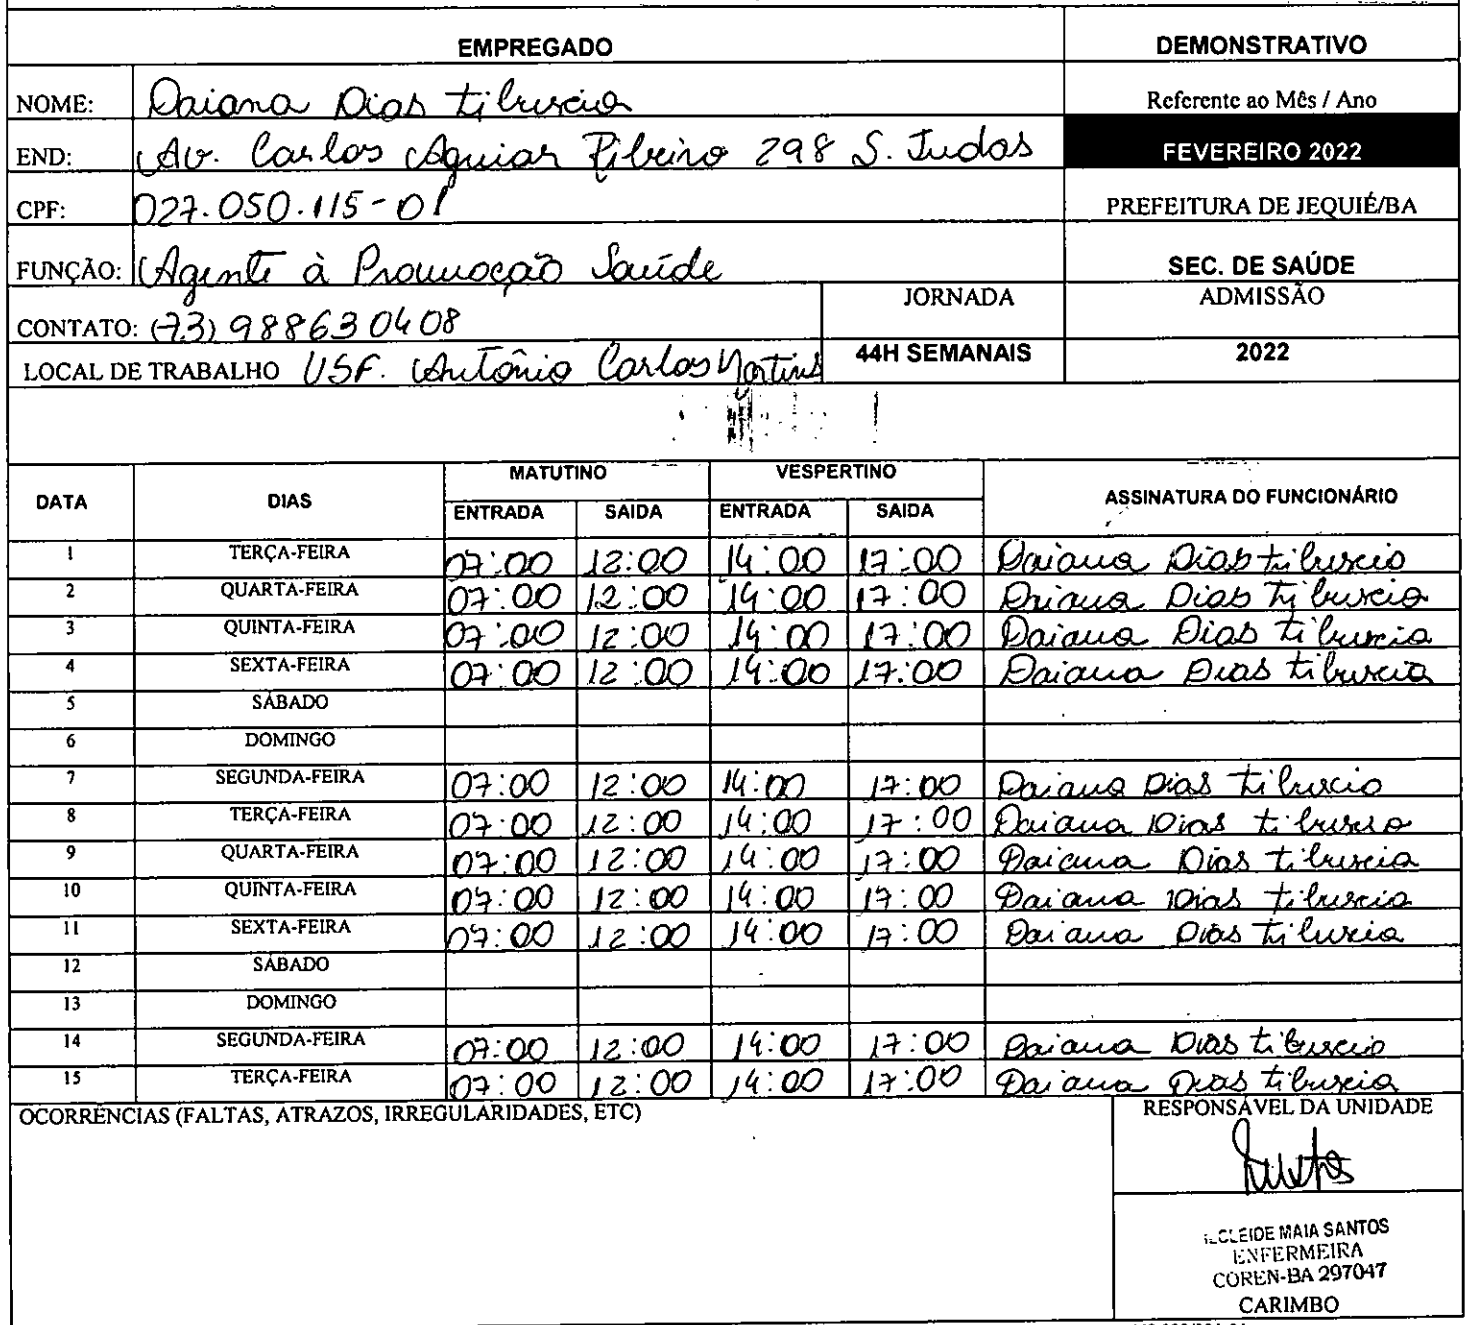 EMPREGADO DEMONSTRATIVO
NOME: Daiana Dias Tiburcio Referente ao Mês / Ano
END: Av. Carlos Aguiar Ribeiro 298 S. Judas FEVEREIRO 2022
CPF: 027.050.115-01 PREFEITURA DE JEQUIÉ/BA
FUNÇÃO: Agente à Promoção Saúde SEC. DE SAÚDE
JORNADA ADMISSÃO
CONTATO: (73) 988630408
LOCAL DE TRABALHO USF. Antônio Carlos Martins 44H SEMANAIS 2022
DATA DIAS MATUTINO VESPERTINO ASSINATURA DO FUNCIONÁRIO
ENTRADA SAIDA ENTRADA SAIDA
1 TERÇA-FEIRA 07:00 12:00 14:00 17:00 Daiana Dias tiburcio
2 QUARTA-FEIRA 07:00 12:00 14:00 17:00 Daiana Dias tiburcio
3 QUINTA-FEIRA 07:00 12:00 14:00 17:00 Daiana Dias tiburcio
4 SEXTA-FEIRA 07:00 12:00 14:00 17:00 Daiana Dias tiburcio
5 SÁBADO
6 DOMINGO
7 SEGUNDA-FEIRA 07:00 12:00 14:00 17:00 Daiana Dias tiburcio
8 TERÇA-FEIRA 07:00 12:00 14:00 17:00 Daiana Dias tiburcio
9 QUARTA-FEIRA 07:00 12:00 14:00 17:00 Daiana Dias tiburcio
10 QUINTA-FEIRA 07:00 12:00 14:00 17:00 Daiana Dias tiburcio
11 SEXTA-FEIRA 07:00 12:00 14:00 17:00 Daiana Dias tiburcio
12 SÁBADO
13 DOMINGO
14 SEGUNDA-FEIRA 07:00 12:00 14:00 17:00 Daiana Dias tiburcio
15 TERÇA-FEIRA 07:00 12:00 14:00 17:00 Daiana Dias tiburcio
OCORRÊNCIAS (FALTAS, ATRAZOS, IRREGULARIDADES, ETC) RESPONSÁVEL DA UNIDADE
MAIA SANTOS
ENFERMEIRA
COREN-BA 297047
CARIMBO